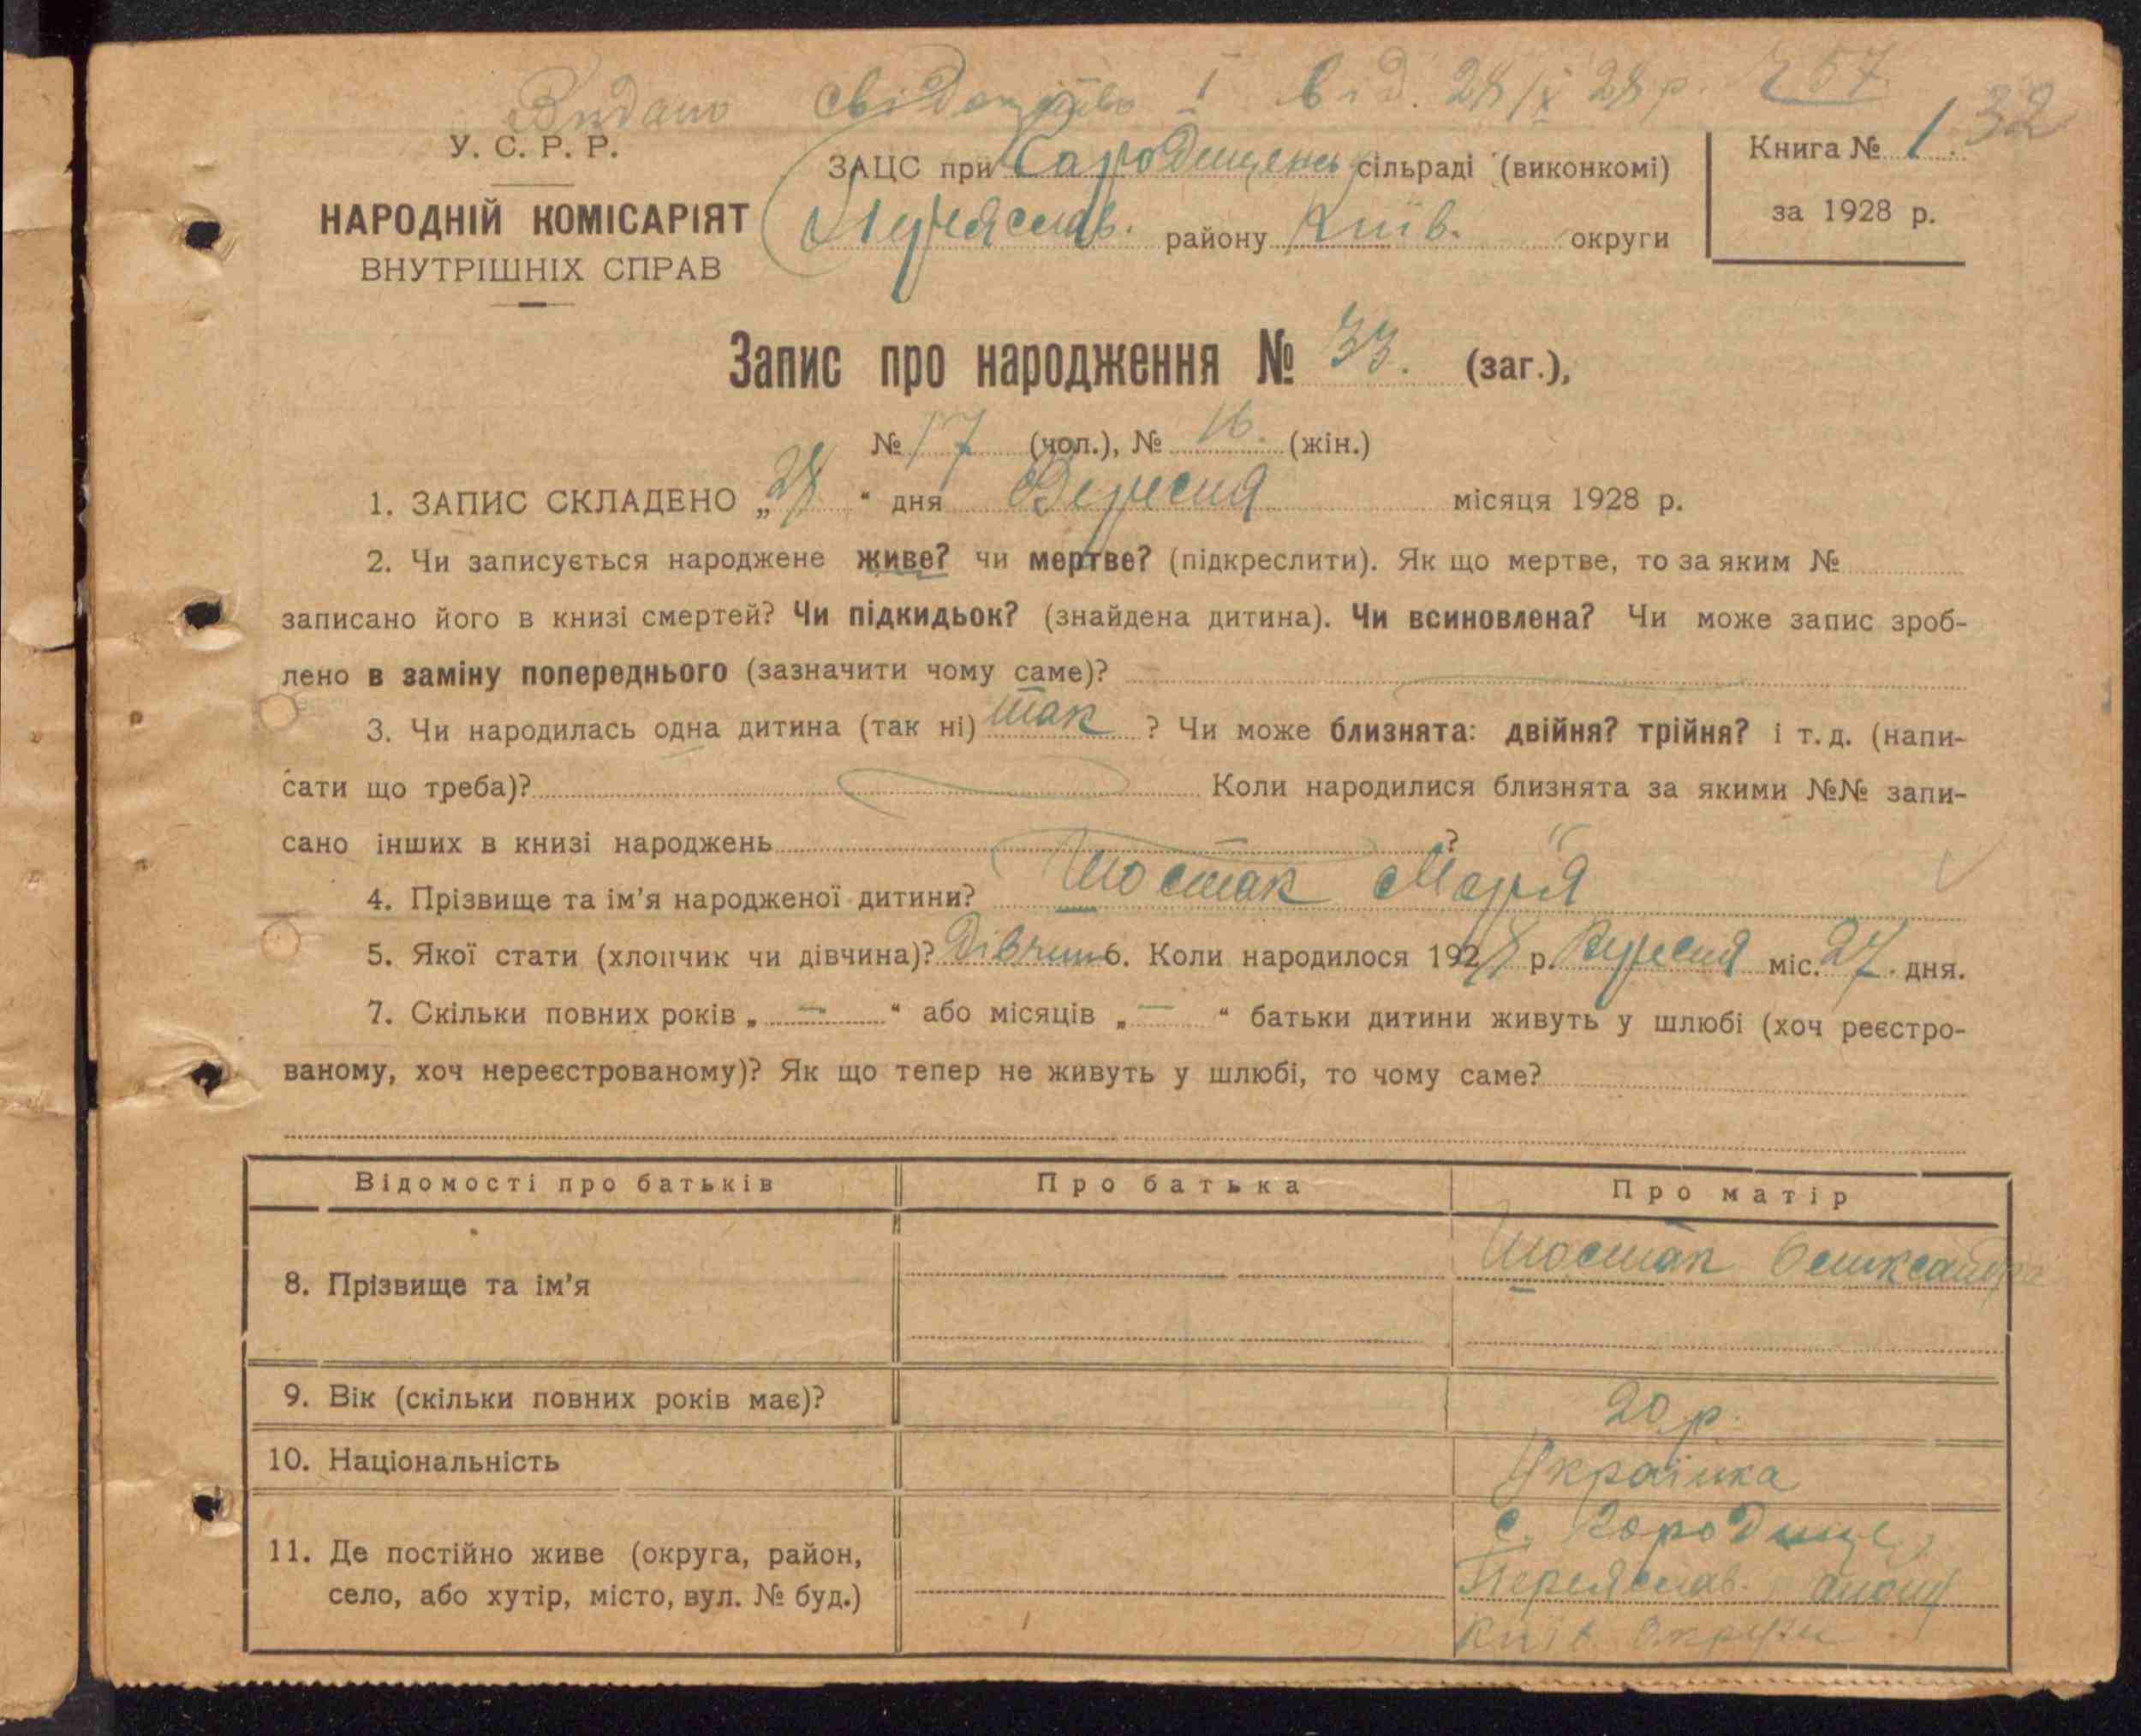 Видано свідоцтво І від. 28/ІХ 28 р. 57
32
У. С. Р. Р.
НАРОДНІЙ КОМІСАРІЯТ
ВНУТРІШНІХ СПРАВ
ЗАЦС при Городищенс сільраді (виконкомі)
Переяслав. району Київ. округи
Книга № 1.
за 1928 р.
Запис про народження № 33. (заг.),
№ 17 (чол.), № 16. (жін.)
1. ЗАПИС СКЛАДЕНО „28“ дня Вересня місяця 1928 р.
2. Чи записується народжене живе? чи мертве? (підкреслити). Як що мертве, то за яким №
записано його в книзі смертей? Чи підкидьок? (знайдена дитина). Чи всиновлена? Чи може запис зроб-
лено в заміну попереднього (зазначити чому саме)?
3. Чи народилась одна дитина (так ні) так ? Чи може близнята: двійня? трійня? і т. д. (напи-
сати що треба)? Коли народилися близнята за якими №№ запи-
сано інших в книзі народжень ?
4. Прізвище та ім’я народженої дитини? Шостак Марія
5. Якої стати (хлопчик чи дівчина)? Дівчин 6. Коли народилося 1928 р. Вересня міс. 27. дня.
7. Скільки повних років „ — “ або місяців „ — “ батьки дитини живуть у шлюбі (хоч реєстро-
ваному, хоч нереєстрованому)? Як що тепер не живуть у шлюбі, то чому саме?
Відомості про батьків Про батька Про матір
8. Прізвище та ім’я Шостак Олександра
9. Вік (скільки повних років має)? 20 р.
10. Національність Українка
11. Де постійно живе (округа, район,
село, або хутір, місто, вул. № буд.)
с. Городище
Переяслав.
Київ. Округи